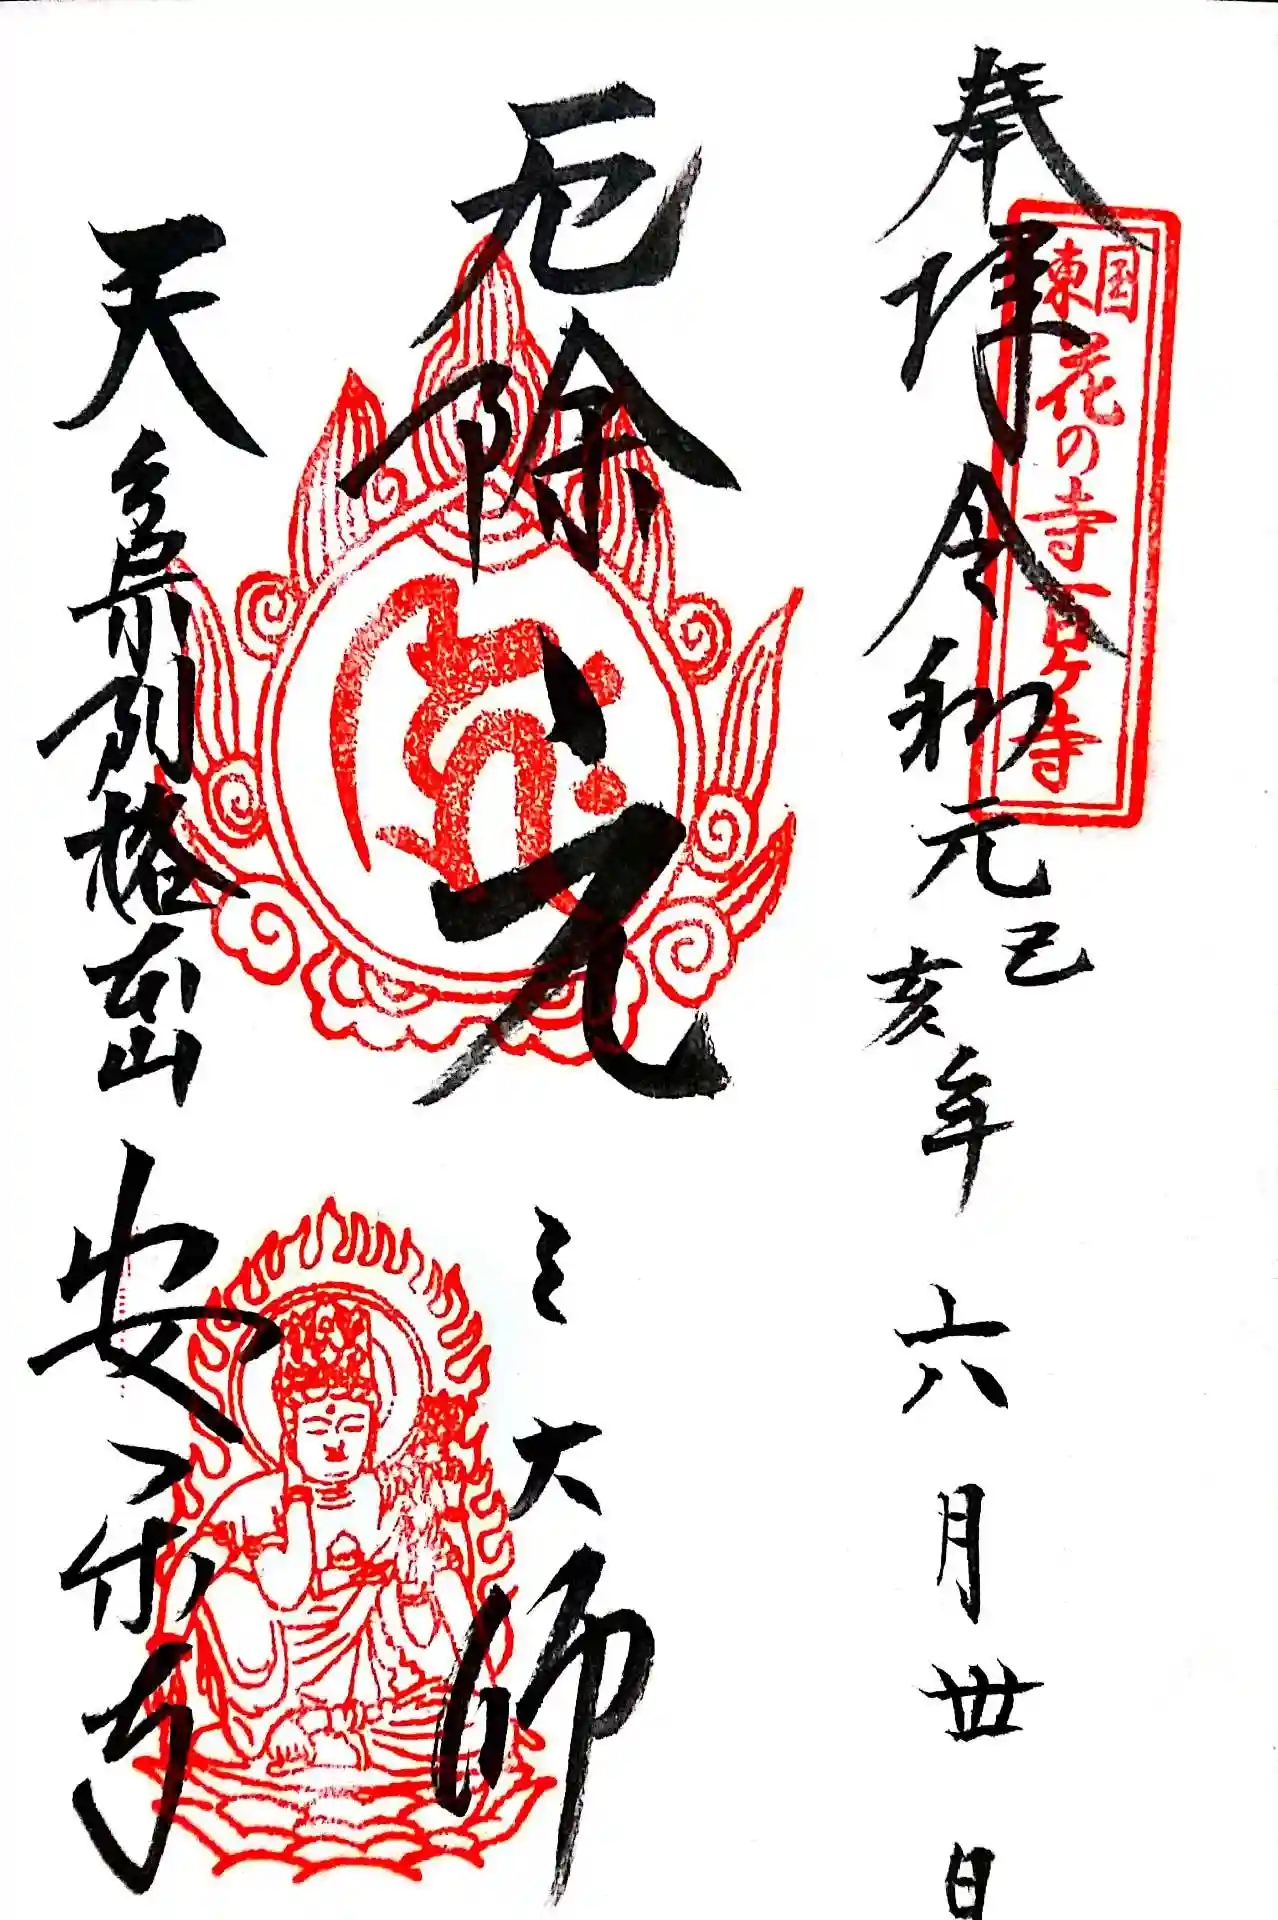 奉拝 令和元己亥年 六月丗日
東国花の寺百ヶ寺
厄除 元三大師
天台宗別格本山 安楽寺